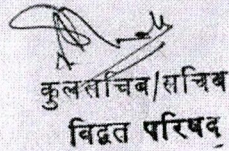 कुलसचिब/सचिब
विद्वत परिषद्